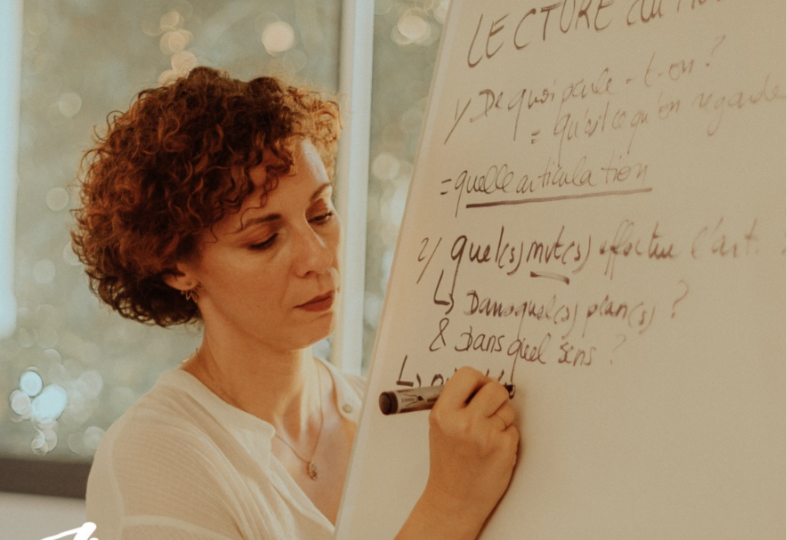 LECTURE du
1/ De quoi parle-t-on ?
= qu'est ce qu'on regarde
= quelle articulation
2/ quel(s) mvt(s) effectue l'arti
↳ Dans quel(s) plan(s) ?
& Dans quel sens ?
↳